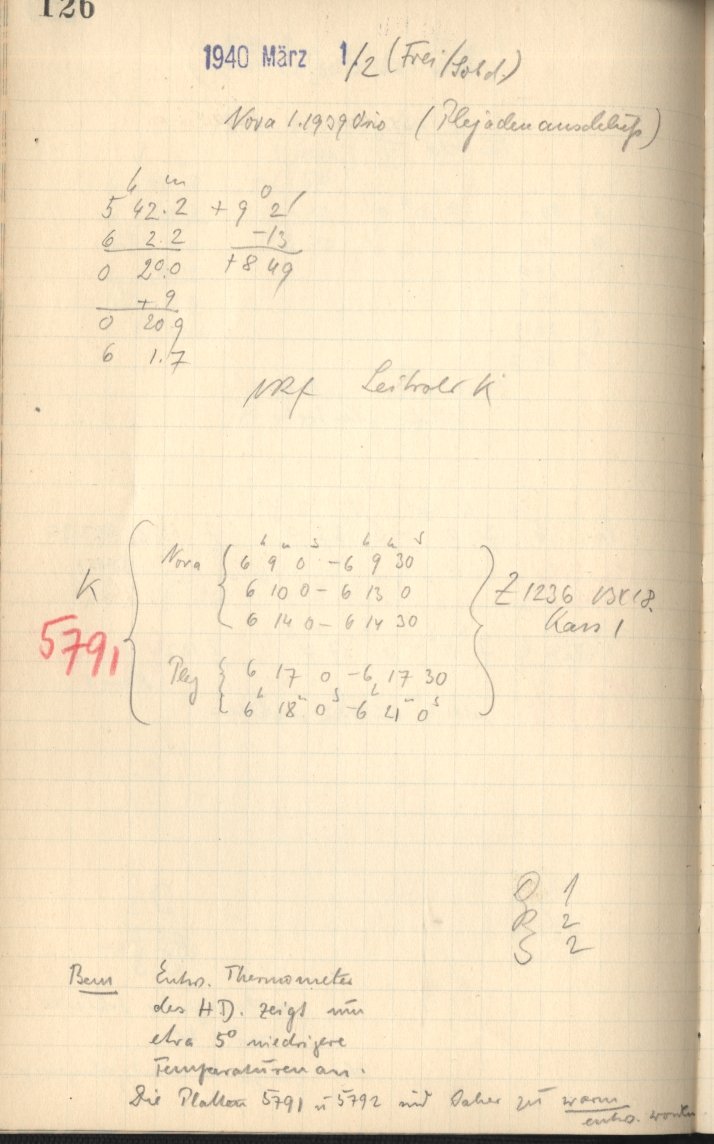 126
1940 März 1/2 (Frei/Sbd.)
Nova 1.1939 Mo (Plejadenanschluß)
h m
5 42.2 + 9° 2'
6 2.2 -13
0 20.0 +8 49
+ 9
0 20.9
6 1.7
Leitrohr K
h m s h m s
Nova 6 9 0 - 6 9 30
6 10 0 - 6 13 0
K 6 14 0 - 6 14 30 Z 1236 13x18
Kass 1
5791
Plej 6 17 0 - 6 17 30
6h 18m 0s - 6h 21m 0s
D 1
R 2
S 2
Bem Entw. Thermometer
des HD. zeigt um
etwa 5° niedrigere
Temperaturen an.
Die Platten 5791 u 5792 sind daher zu warm
entw. worden